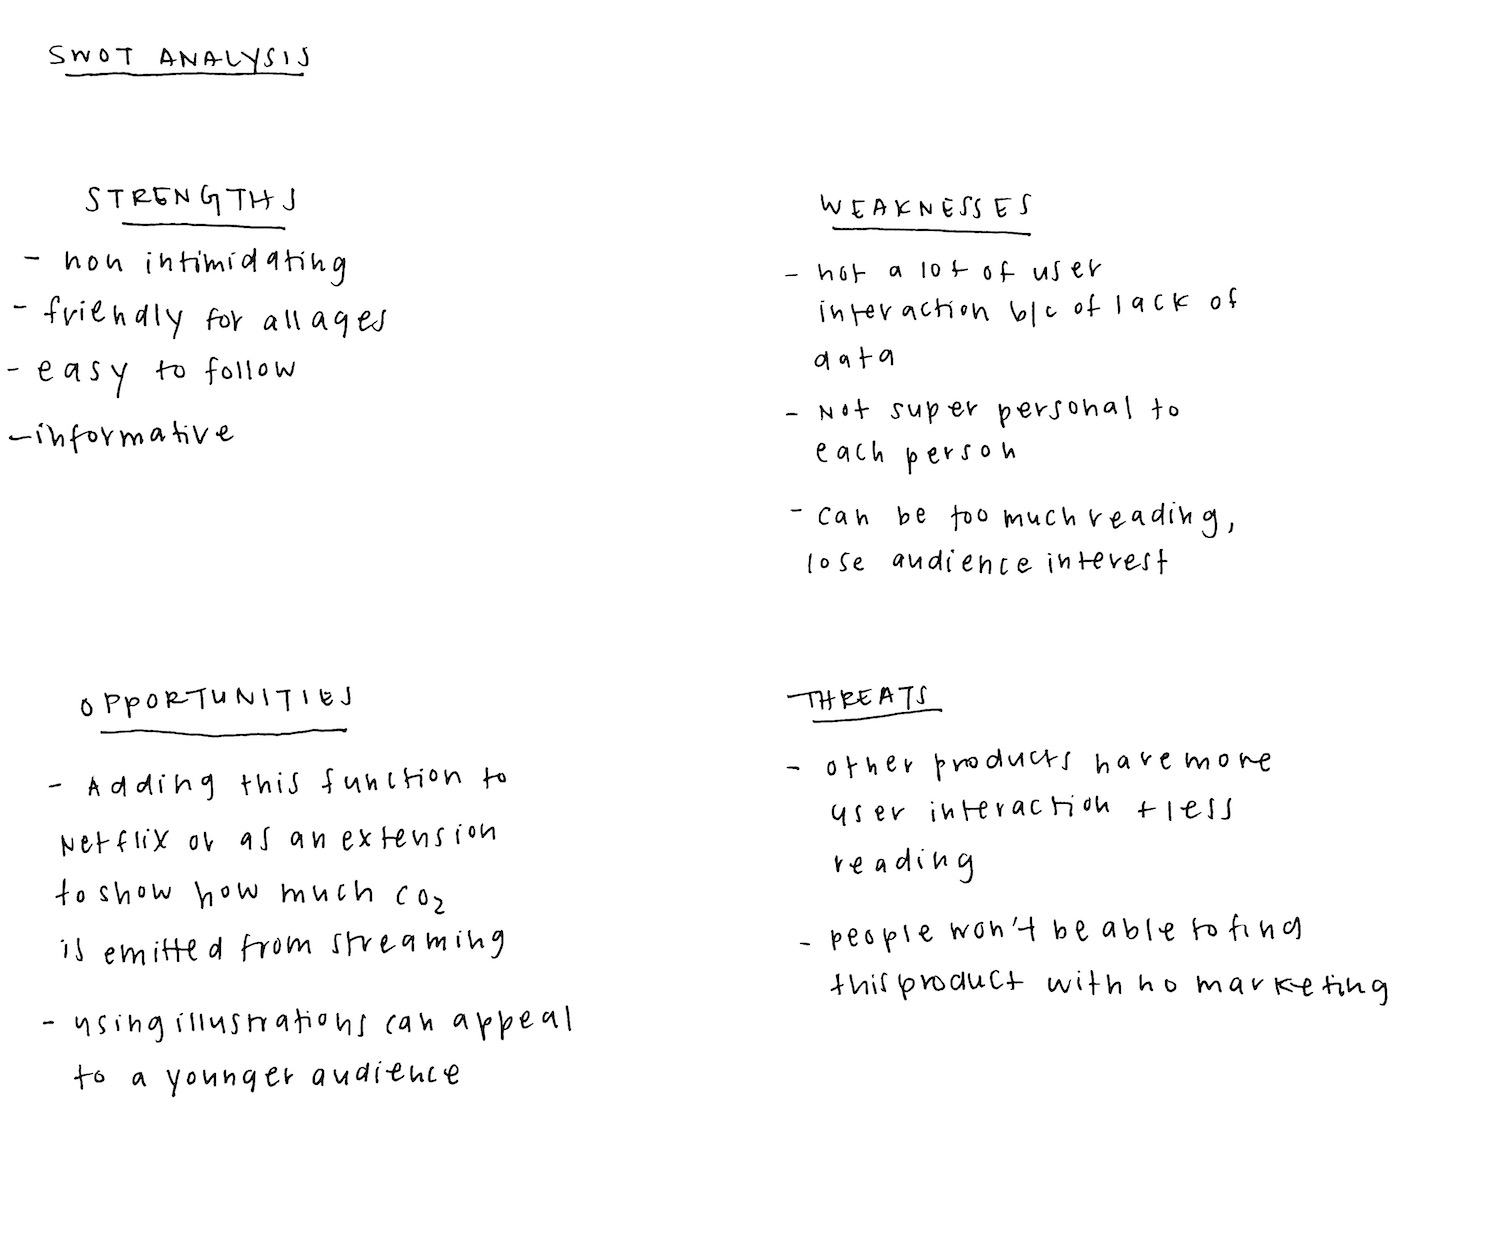 SWOT ANALYSIS
STRENGTHS
- non intimidating
- friendly for all ages
- easy to follow
- informative
WEAKNESSES
- not a lot of user
interaction b/c of lack of
data
- Not super personal to
each person
- can be too much reading,
lose audience interest
OPPORTUNITIES
- Adding this function to
Netflix or as an extension
to show how much CO2
is emitted from streaming
- using illustrations can appeal
to a younger audience
THREATS
- other products have more
user interaction + less
reading
- people won't be able to find
this product with no marketing